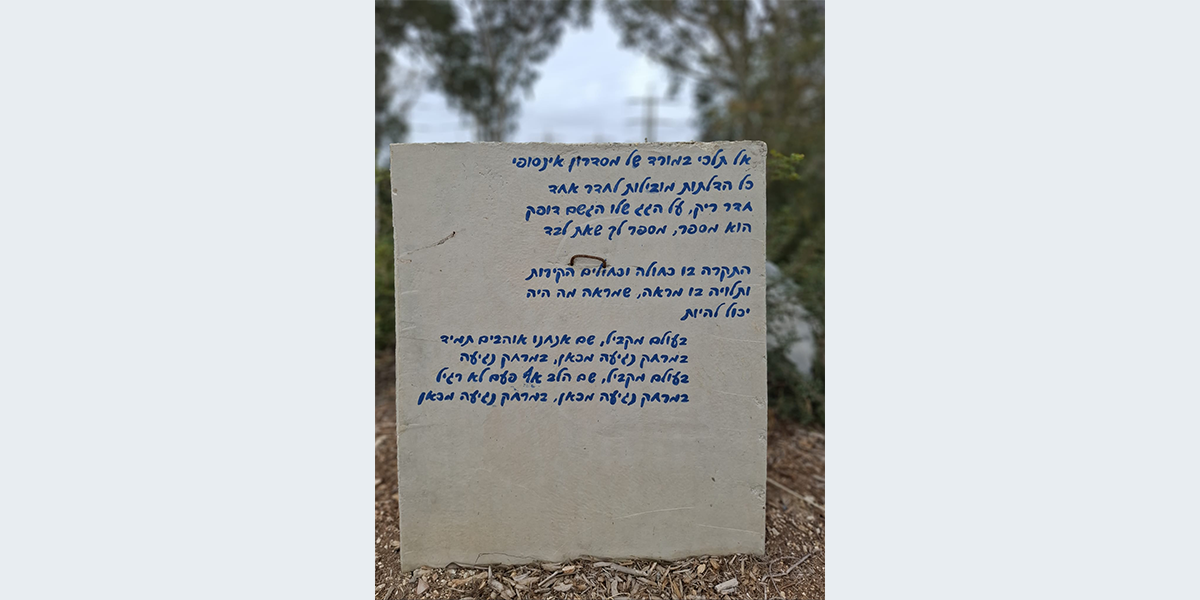 אל תלכי במורד של מסדרון אינסופי
כל הדלתות מובילות לחדר אחד
חדר ריק, על הגג שלו הגשם דופק
הוא מספר, מספר לך שאת לבד
התקרה בו כחולה וכחולים הקירות
ותלויה בו מראה, שמראה מה היה
יכול להיות
בעולם מקביל, שם אנחנו אוהבים תמיד
במרחק נגיעה מכאן, במרחק נגיעה
בעולם מקביל, שם הלב אף פעם לא רגיל
במרחק נגיעה מכאן, במרחק נגיעה מכאן